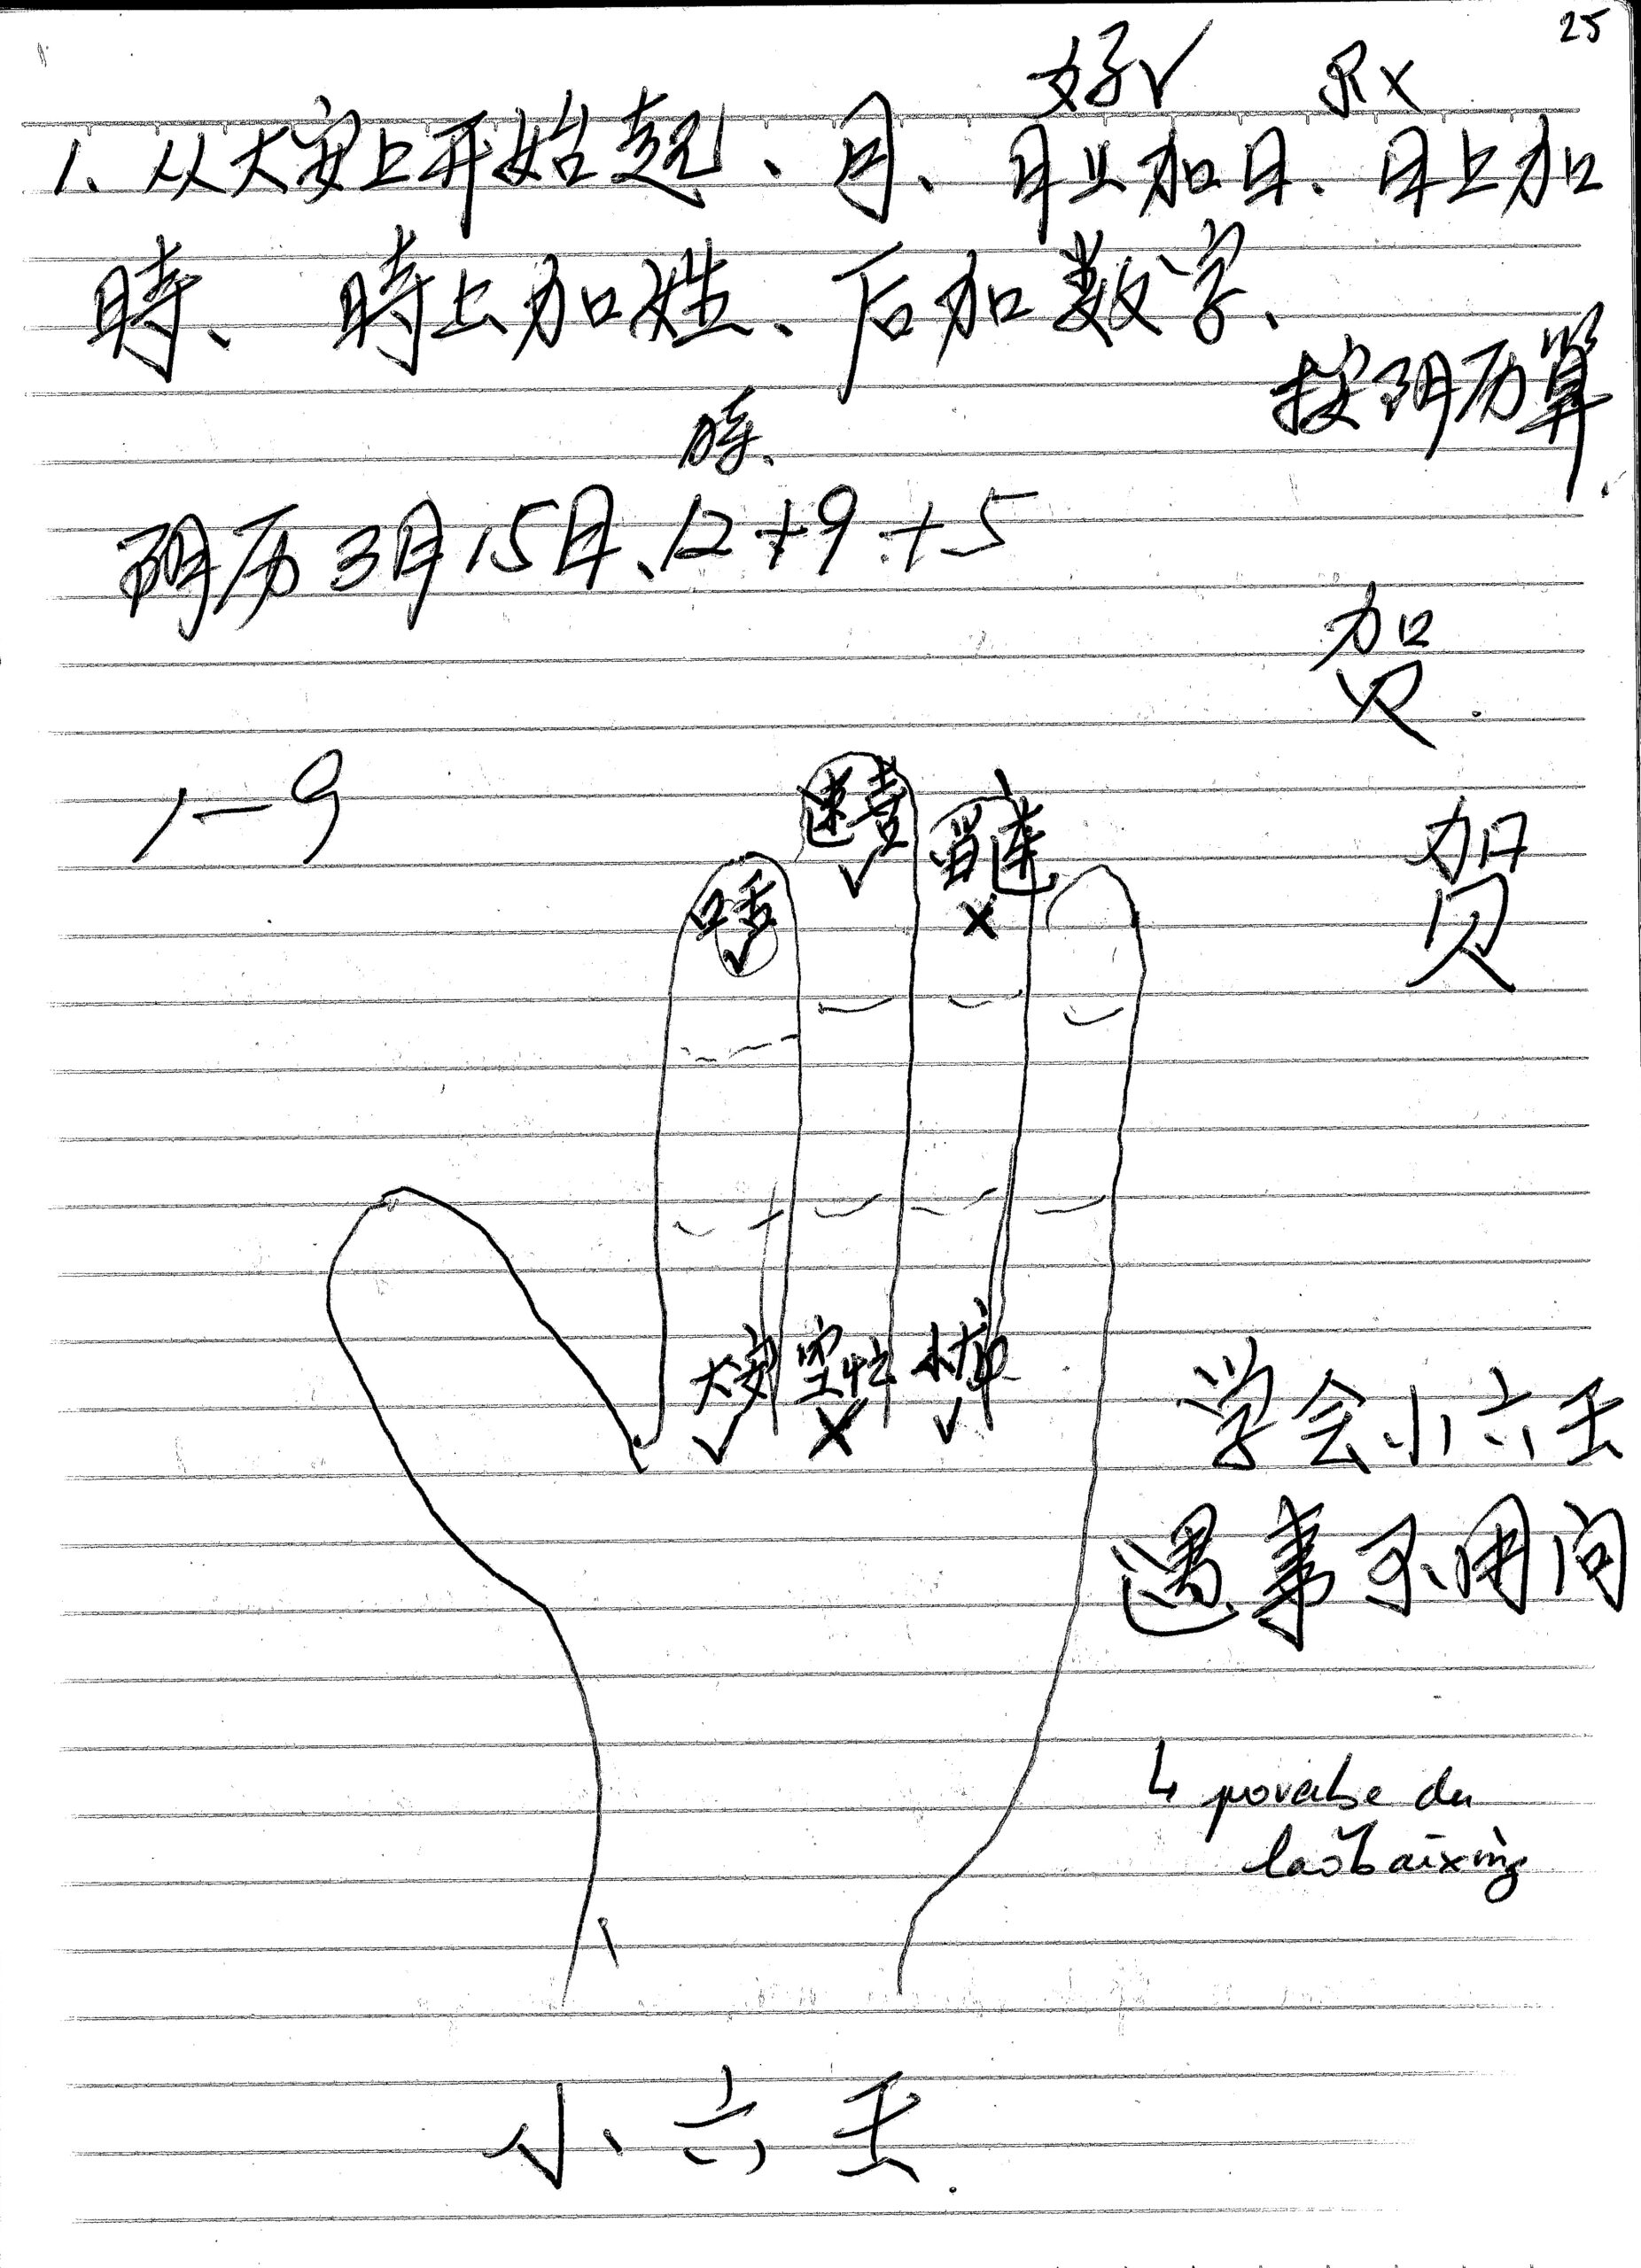 25
好√ 
1、从大安上开始起、月、月上加日、日上加
時、時上加姓、后加数字、
按阴历算
時、
阴历3月15日、12+9+5
贺
1-9
速喜 留连
√
口舌 ×
√
贺
大安 空亡 小吉
√ × √
学会小六壬
遇事不用问
↳ proverbe du
lǎobǎixìng
小六壬